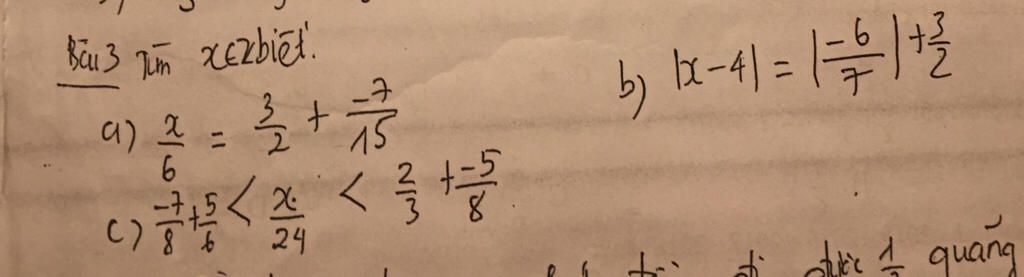 Bài 3 Tìm x∈Z biết:
a) x/6 = 3/2 + -7/15
b) |x-4| = |-6/7| + 3/2
c) -7/8 + 5/6 < x/24 < 2/3 + -5/8
được 1 quãng